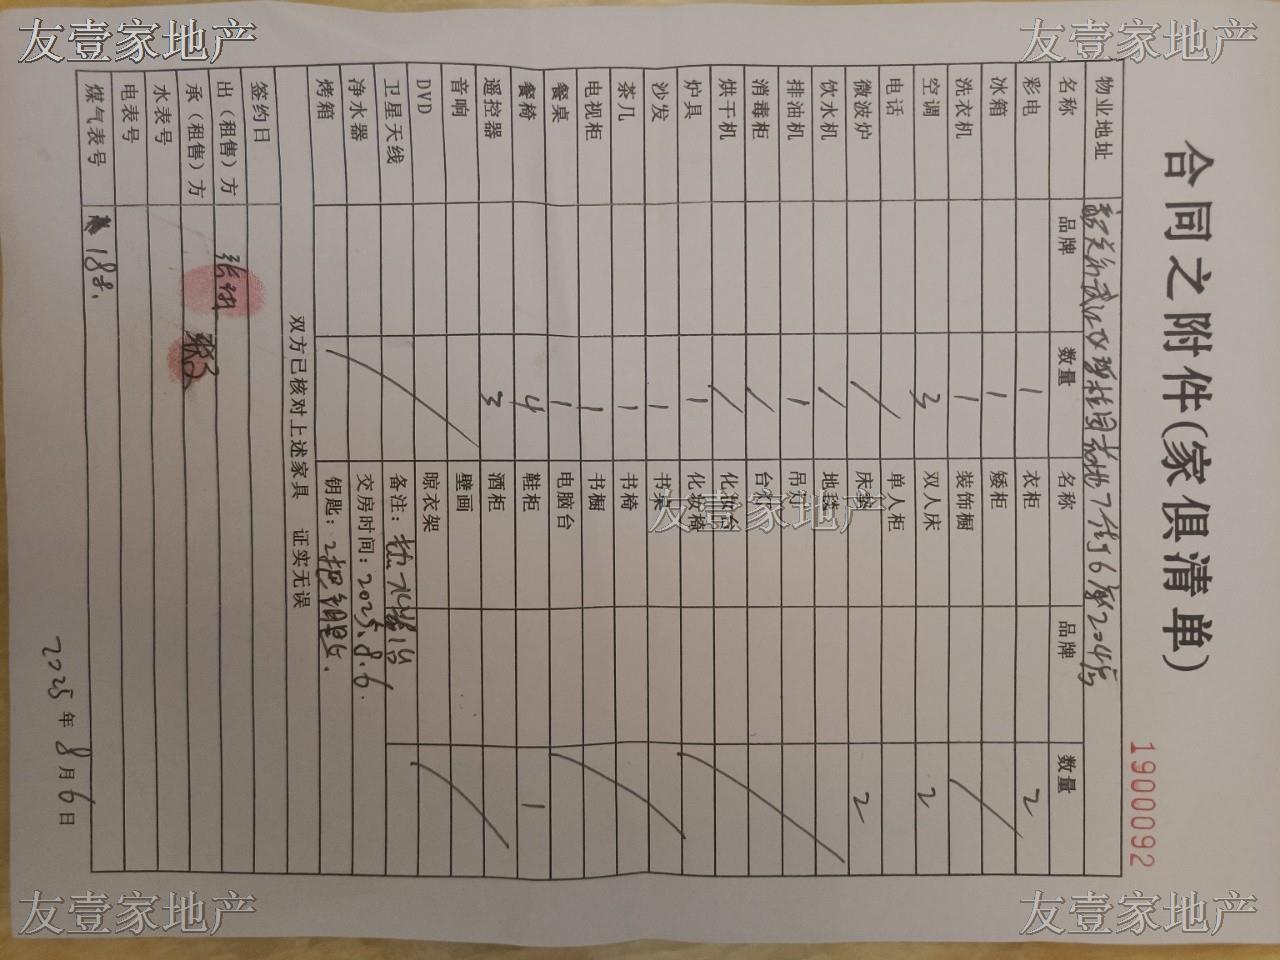 合同之附件(家俱清单)
1900092
物业地址 碧桂园 7街6座204房
名称 品牌 数量 名称 品牌 数量
彩电 1 衣柜 2
冰箱 1 矮柜
洗衣机 1 装饰橱
空调 3 双人床 2
电话 单人柜
微波炉 床垫 2
饮水机 地毯
排油机 1 吊灯
消毒柜 台灯
烘干机 化妆台
炉具 1 化妆椅
沙发 1 书桌
茶几 1 书椅
电视柜 1 书橱
餐桌 1 电脑台
餐椅 4 鞋柜 1
遥控器 3 酒柜
音响 壁画
DVD 晾衣架
卫星天线 备注：热水器1台
净水器 交房时间：2025.8.6.
烤箱 钥匙：2把钥匙.
双方已核对上述家具 证实无误
签约日
出（租售）方
承（租售）方
水表号
电表号
煤气表号
2025年8月6日
友壹家地产
友壹家地产
友壹家地产
友壹家地产
友壹家地产